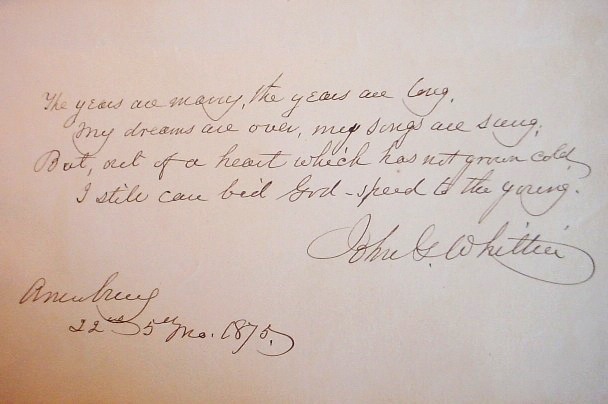 The years are many, the years are long,
My dreams are over, my songs are sung,
But, out of a heart which has not grown cold,
I still can bid God-speed to the young.
John G. Whittier
Amesbury
22nd 5th Mo. 1875.